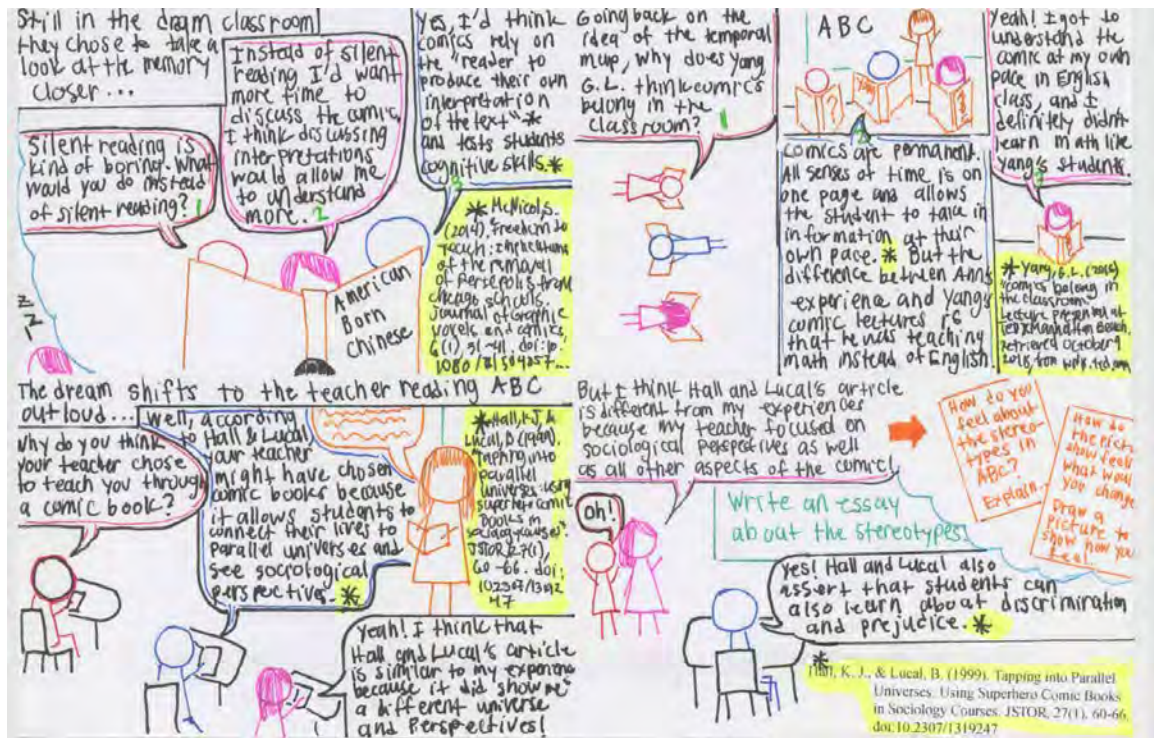 Still in the dream classroom
they chose to take a
look at the memory
closer...
Silent reading is
kind of boring. What
would you do instead
of silent reading? 1
Instead of silent
reading I'd want
more time to
discuss the comic.
I think discussing
interpretations
would allow me
to understand
more. 2
Yes, I'd think
comics rely on
the "reader to
produce their own
interpretation
of the text"*
and tests students
cognitive skills.*
3
* McNicol, S.
(2014). Freedom to
teach: Implications
of the removal
of Persepolis from
Chicago schools.
Journal of Graphic
Novels and comics
(1), 31-41. doi:10.
1080/
American
Born
Chinese
z
z
Going back on the
idea of the temporal
map, why does Yang,
G.L. think comics
belong in the
classroom? 1
ABC
Yang
2
comics are permanent.
All senses of time is on
one page and allows
the student to take in
information at their
own pace. * But the
difference between Anns
experience and Yang's
comic lectures is
that he was teaching
math instead of English.
Yeah! I got to
understand the
comic at my own
pace in English
class, and I
definitely didn't
learn math like
Yang's students.
3
* Yang, G.L. (2016)
"comics belong in
the classroom"
Lecture presented at
TEDxManhattan Beach.
Retrieved October 9
2018, from
The dream shifts to the teacher reading ABC
out loud...
Why do you think
your teacher chose
to teach you through
a comic book?
Well, according
to Hall & Lucal,
your teacher
might have chosen
comic books because
it allows students to
connect their lives to
parallel universes and
see sociological
perspectives. *
* Hall, K.J., &
Lucal, B. (1999).
"Tapping into
parallel
universes: using
superhero comic
books in
sociology courses."
JSTOR, 27(1),
60-66. doi:
10.2307/13192
47
Yeah! I think that
Hall and Lucal's article
is similar to my experience
because it did show me
a different universe
and Perspectives!
But I think Hall and Lucal's article
is different from my experiences
because my teacher focused on
sociological perspectives as well
as all other aspects of the comic!
Oh!
How do you
feel about
the stereo-
types in
ABC?
Explain...
How do
the pictures
show feel
what would
you change
Draw a
Picture to
show how you
feel...
Write an essay
about the stereotypes!
Yes! Hall and Lucal also
assert that students can
also learn about discrimination
and prejudice. *
*
Hall, K. J., & Lucal, B. (1999). Tapping into Parallel
Universes: Using Superhero Comic Books
in Sociology Courses. JSTOR, 27(1), 60-66.
doi:10.2307/1319247